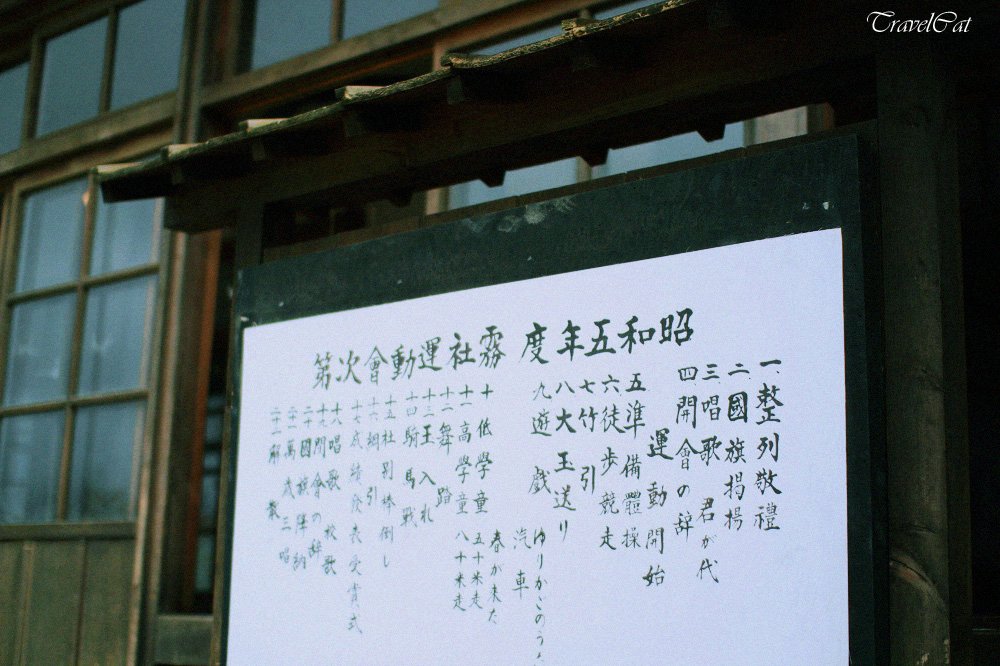 TravelCat
昭和五年度 霧社運動會次第
一 整列敬禮
二 國旗掲揚
三 唱歌 君が代
四 開會の辞
運動開始
五 準備體操
六 徒歩競走
七 竹引
八 大玉送り
九 遊戯 ゆりかごのう
汽車
春が来た
十 低學童 五十米走
十一 高學童 八十米走
十二 舞踊
十三 玉入れ
十四 騎馬戦
十五 社別棒倒し
十六 綱引
十七 成績發表受賞式
十八 唱歌 校歌
十九 閉會の辞
二十 國旗降納
二十一 萬歳三唱
二十二 解散